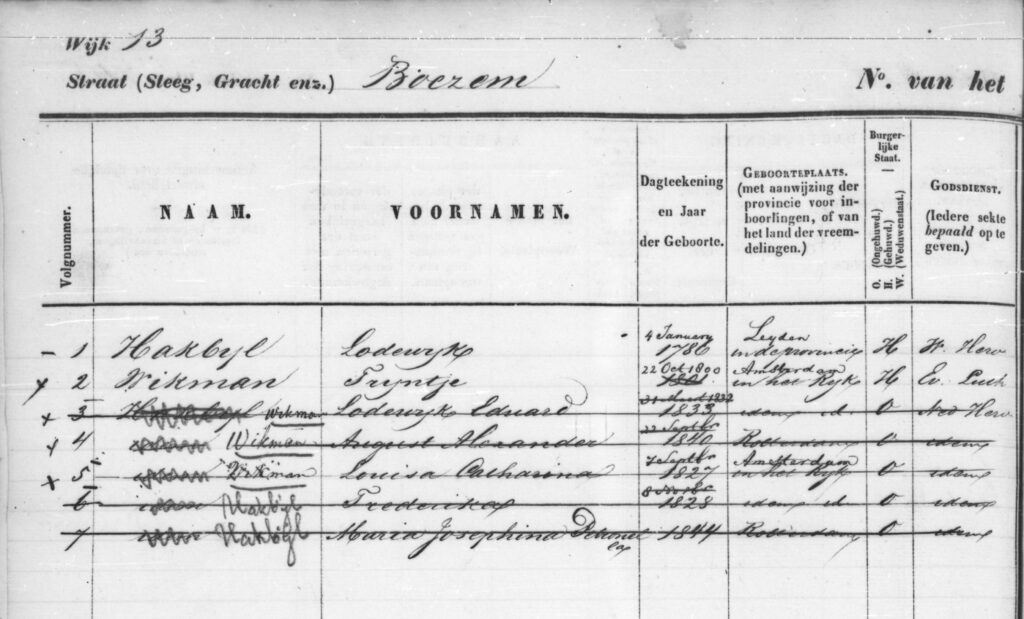 Wijk 13
Straat (Steeg, Gracht enz.) Boezem No. van het
Volgnummer. NAAM. VOORNAMEN. Dagteekening en Jaar der Geboorte. GEBOORTEPLAATS. (met aanwijzing der provincie voor inboorlingen, of van het land der vreemdelingen.) Burgerlijke Staat. O. (Ongehuwd.) H. (Gehuwd.) W. (Weduwenstaat.) GODSDIENST. (Iedere sekte bepaald op te geven.)
– 1 Hakbijl Lodewijk 4 January 1786 Leyden in de provincie H W. Herv
x 2 Wikman Tryntje 22 Oct 1800 1801 Amsterdam in het Ryk H Ev. Luth
x 3 Hakbyl Wikman Lodewyk Eduard 1833 idem id O Ned Herv
x 4 Wikman August Alexander 22 Septbr 1840 Rotterdam O idem
x 5 Wikman Louisa Catharina 7 Septbr 1827 Amsterdam in het Ryk O idem
6 Hakbijl Frederika 1828 idem id O idem
7 Hakbijl Maria Josephina Petronella 1844 Rotterdam O idem